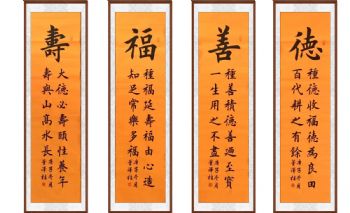 德
種德收福德為良田
百代耕之有餘
善
種善積德善至寶
一生用之不盡
福
種福延壽福由心造
知足常樂多福
壽
大德必壽頤性養年
壽與山高水長